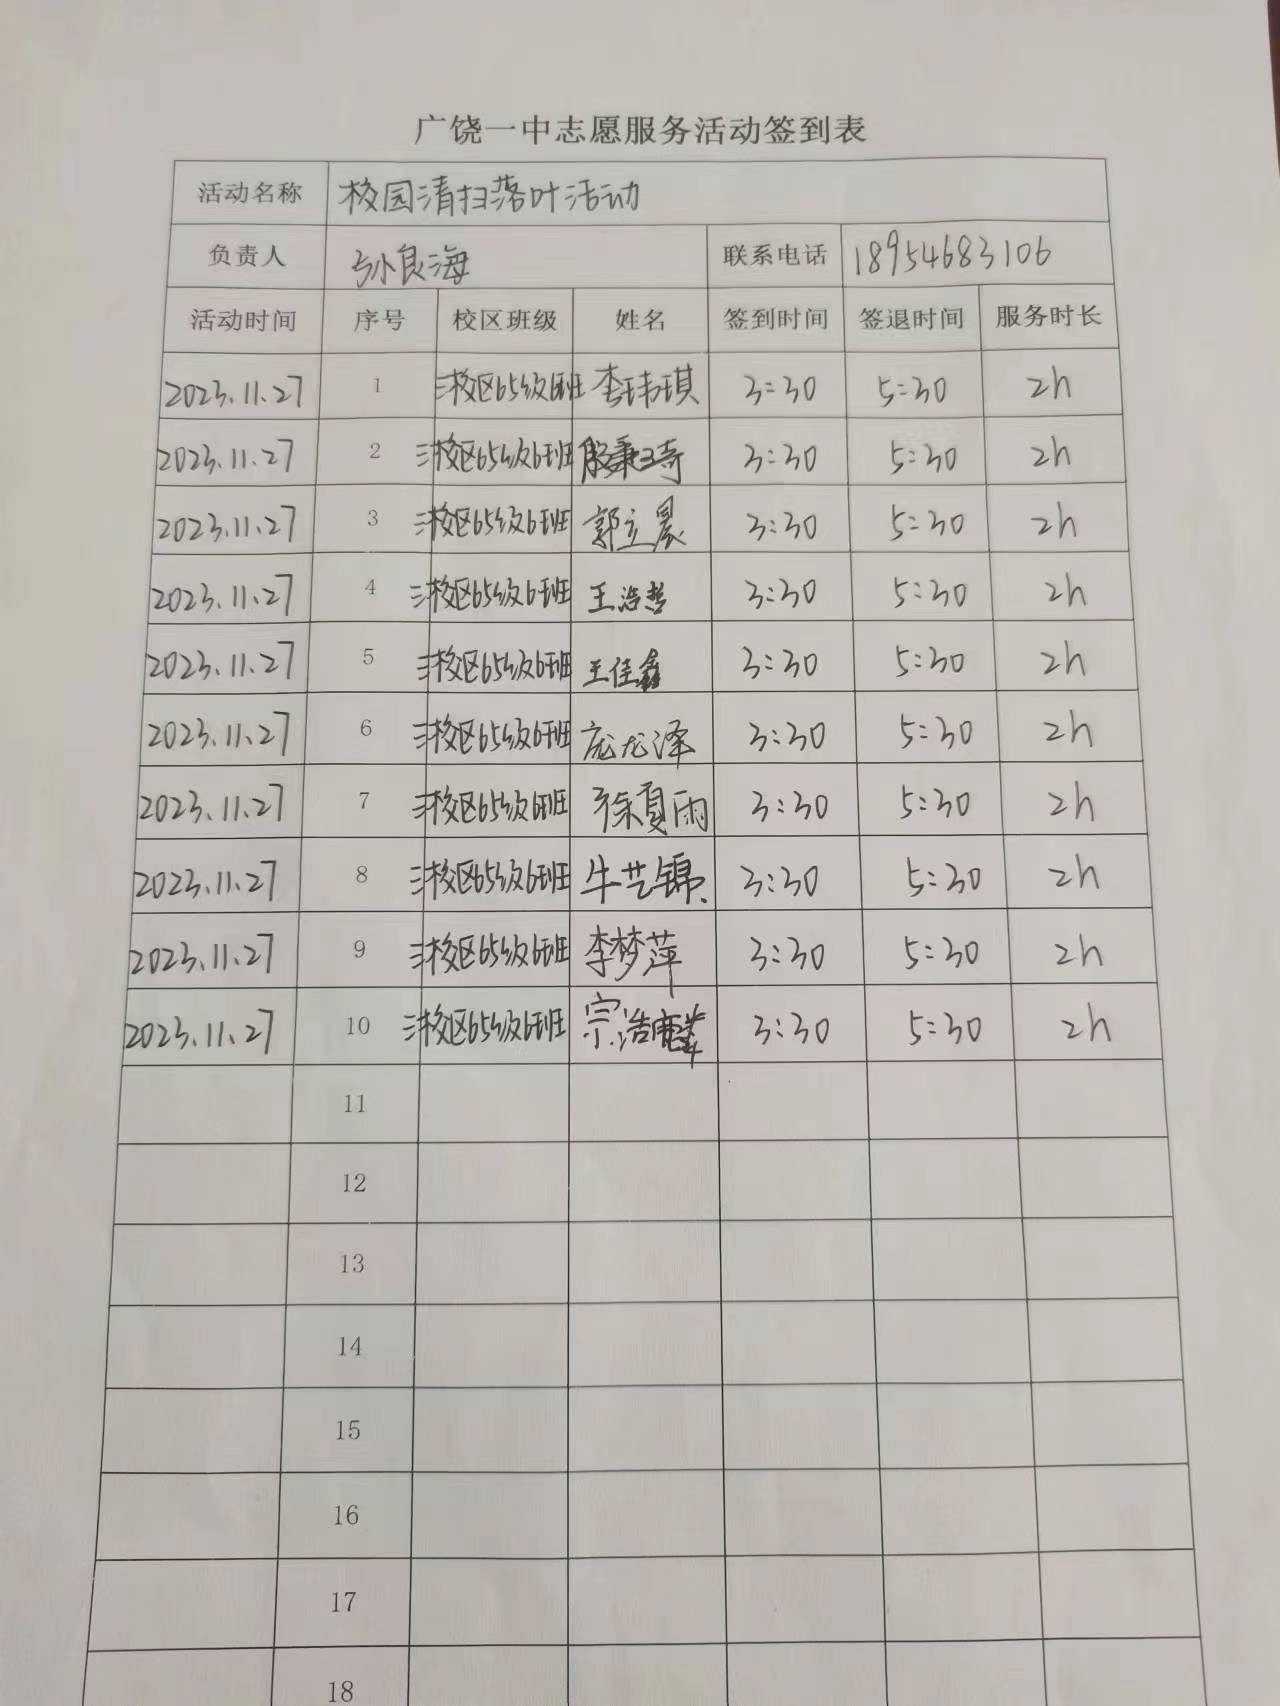 广饶一中志愿服务活动签到表
活动名称 校园清扫落叶活动
负责人 孙良海 联系电话 18954683106
活动时间 序号 校区班级 姓名 签到时间 签退时间 服务时长
2023.11.27 1 三校区65级6班 李玮琪 3:30 5:30 2h
2023.11.27 2 三校区65级6班 3:30 5:30 2h
2023.11.27 3 三校区65级6班 郭立晨 3:30 5:30 2h
2023.11.27 4 三校区65级6班 王浩哲 3:30 5:30 2h
2023.11.27 5 三校区65级6班 王佳鑫 3:30 5:30 2h
2023.11.27 6 三校区65级6班 庞龙泽 3:30 5:30 2h
2023.11.27 7 三校区65级6班 徐夏雨 3:30 5:30 2h
2023.11.27 8 三校区65级6班 牛艺锦 3:30 5:30 2h
2023.11.27 9 三校区65级6班 李梦萍 3:30 5:30 2h
2023.11.27 10 三校区65级6班 3:30 5:30 2h
11
12
13
14
15
16
17
18